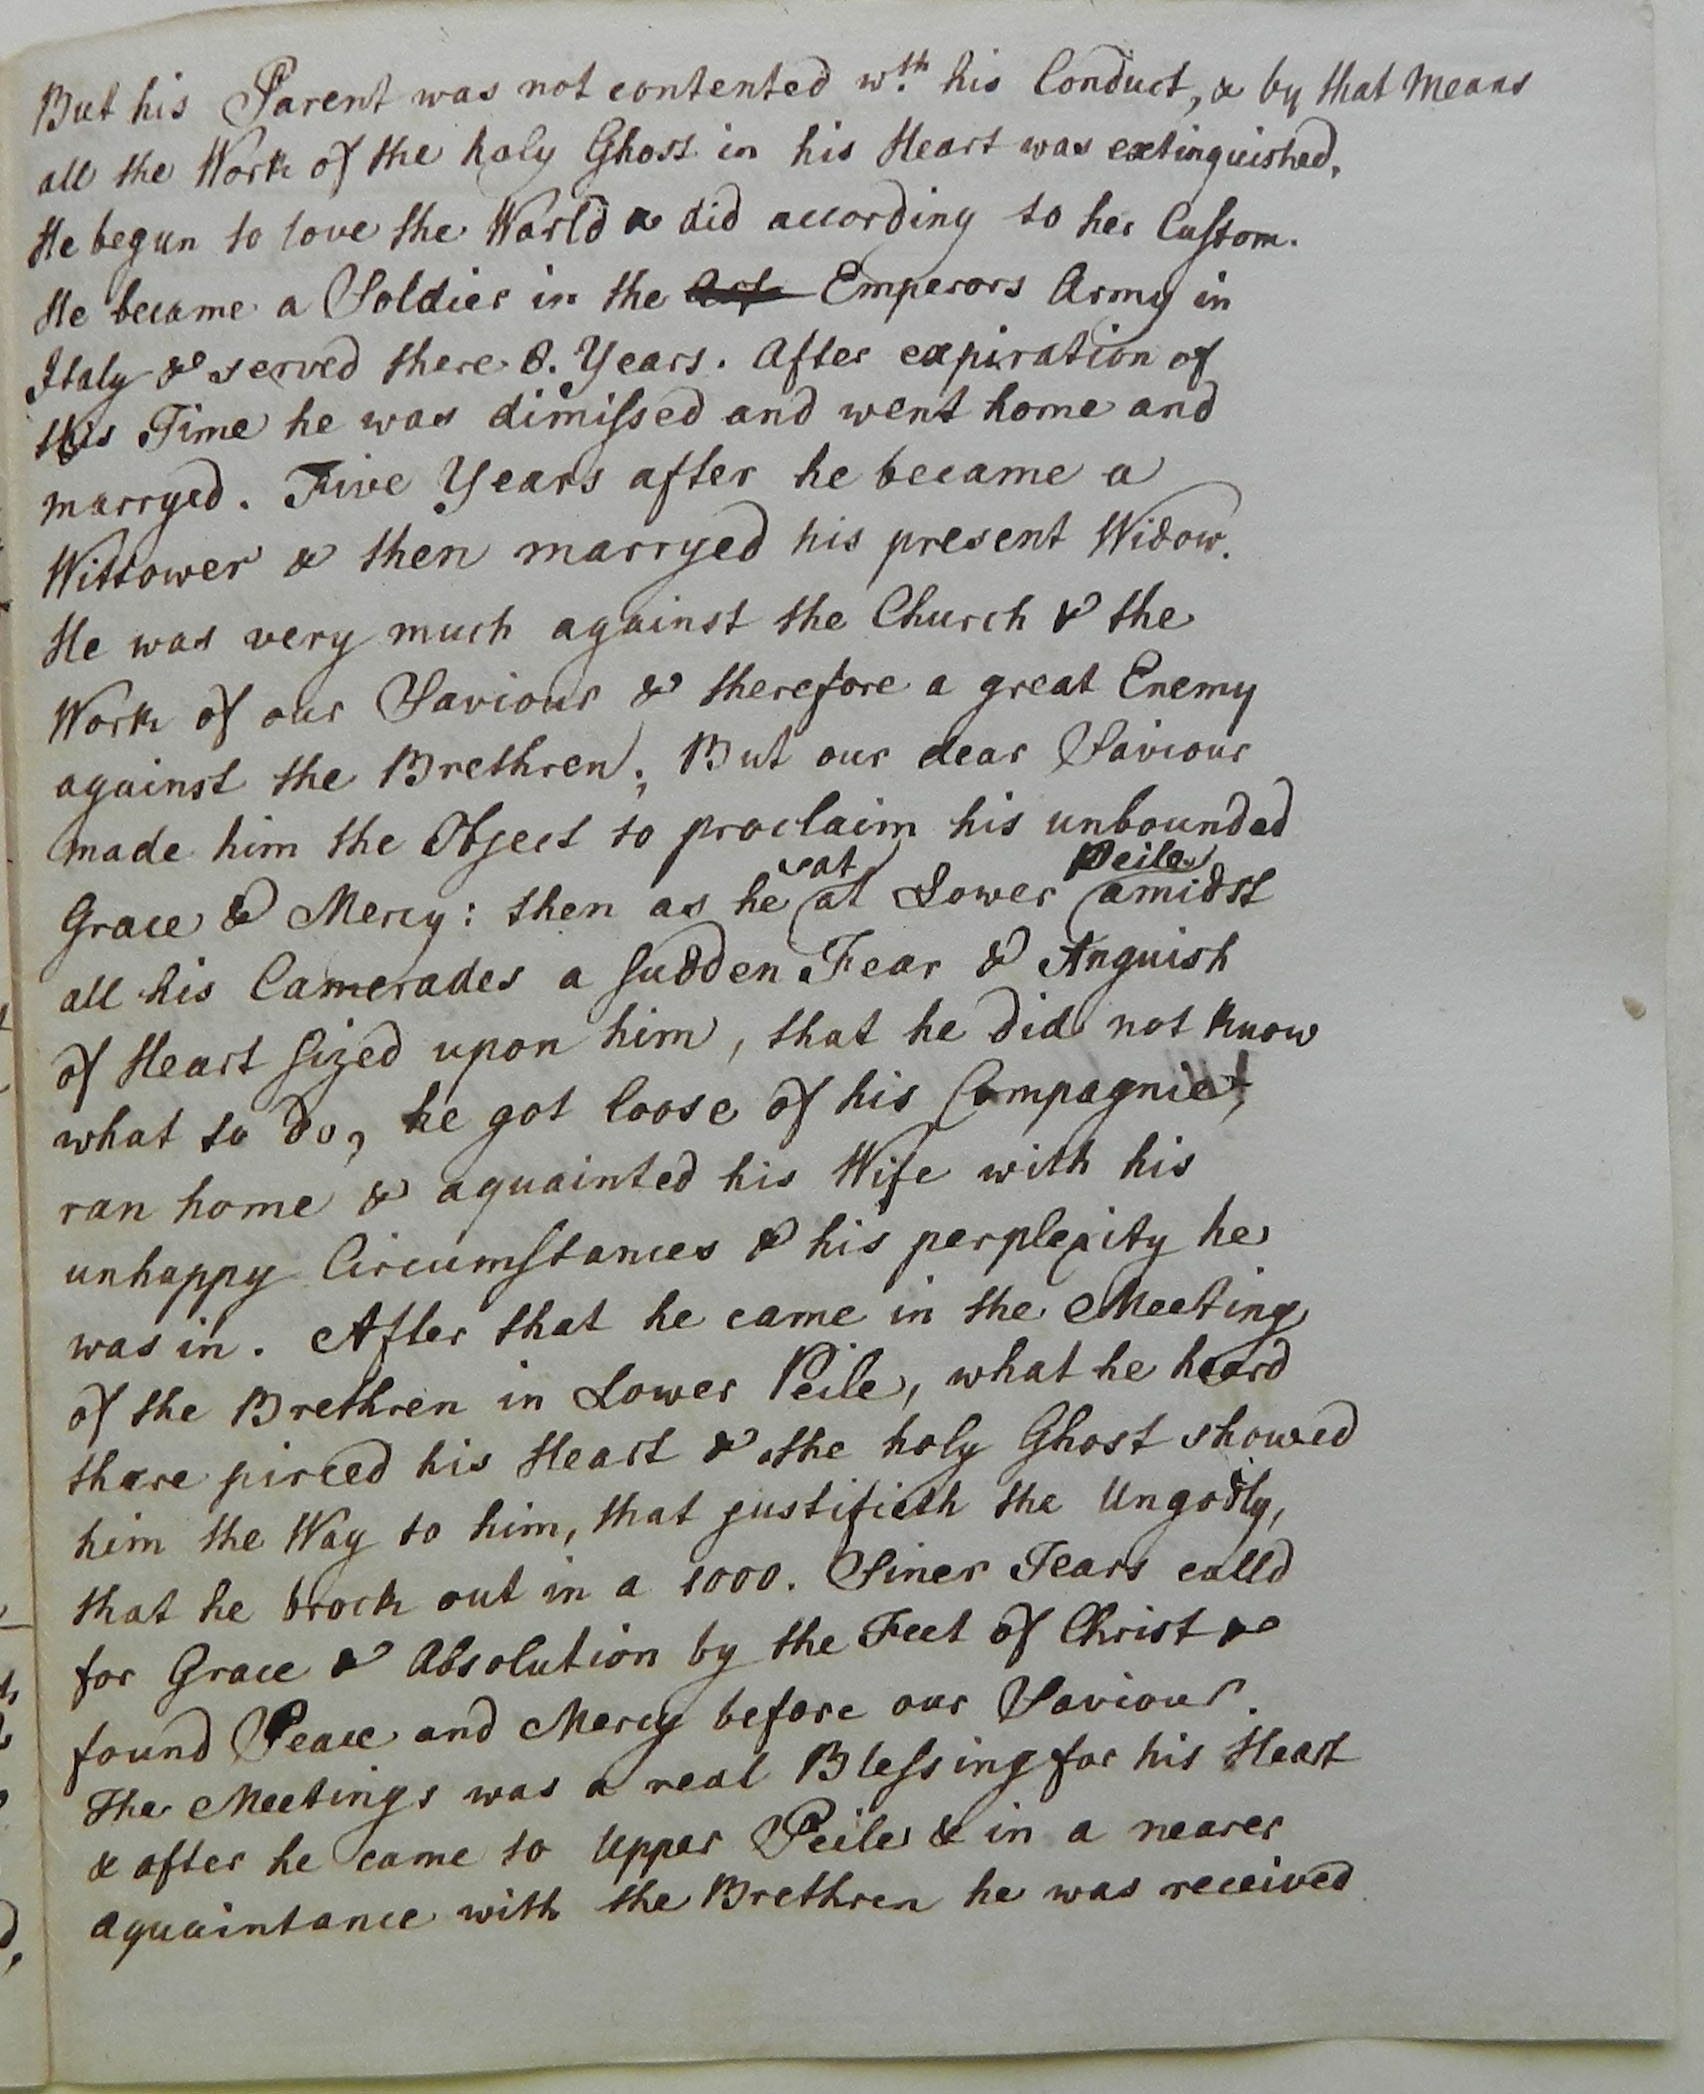 But his Parent was not contented wth. his Conduct, & by that Means
all the Work of the holy Ghost in his Heart was extinguished.
He begun to love the World & did according to her Custom.
He became a Soldier in the Emperors Army in
Italy & served there 8. Years. After expiration of
this Time he was dimissed and went home and
marryed. Five Years after he became a
Wittower & then marryed his present Widow.
He was very much against the Church & the
Work of our Saviour & therefore a great Enemy
against the Brethren; But our dear Saviour
made him the Object to proclaim his unbounded
Grace & Mercy: then as he sat at Lower Peile amidst
all his Camerades a sudden Fear & Anguish
of Heart sized upon him, that he did not know
what to do, he got loose of his Compagnie,
ran home & aquainted his Wife with his
unhappy Circumstances & his perplexity he
was in. After that he came in the Meeting
of the Brethren in Lower Peile, what he heard
there pirced his Heart & the holy Ghost showed
him the Way to him, that justifieth the Ungodly,
that he brock out in a 1000. Siner Tears calld
for Grace & Absolution by the Feet of Christ &
found Peace and Mercy before our Saviour.
The Meetings was a real Blessing for his Heart
& after he came to Upper Peile & in a nearer
aquaintance with the Brethren he was received